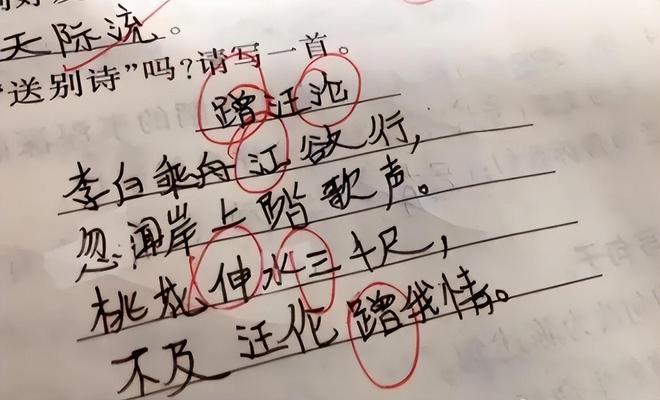 天际流。
"送别诗"吗?请写一首。
蹭汪沦
李白乘舟江欲行,
忽闻岸上踏歌声。
桃花伸水三千尺,
不及汪伦蹭我情。